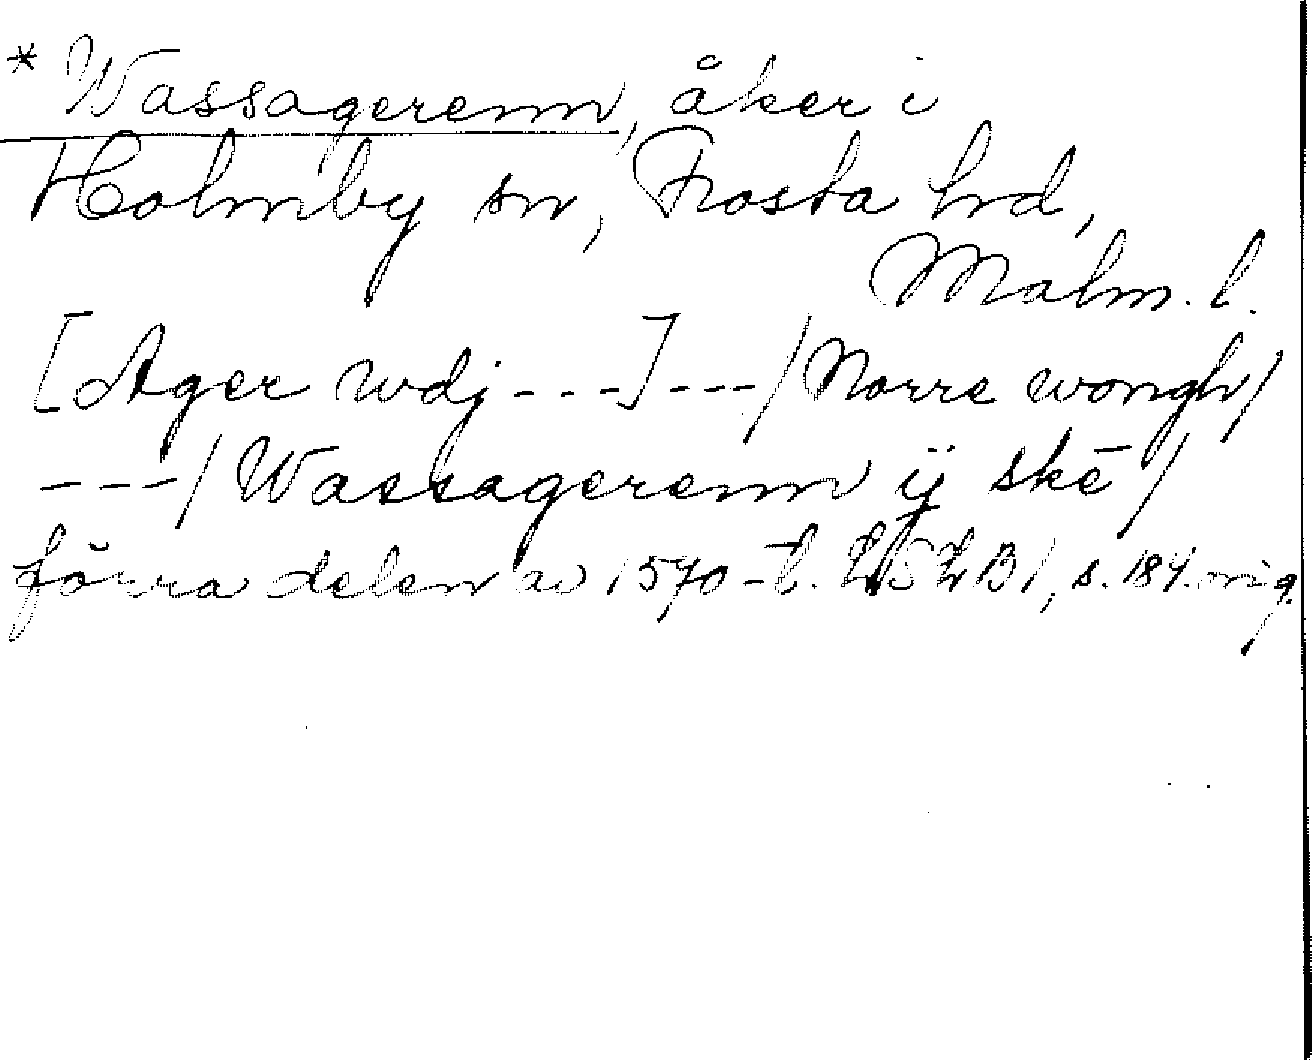 * Wassagerenn, åker i
Holmby sn, Frosta hd,
Malm. l.
[Ager wdj - - -] - - - / Norre wongh /
- - - / Wassagerenn ij skē /
förra delen av 1570-t. LSLB1, s. 184. orig.